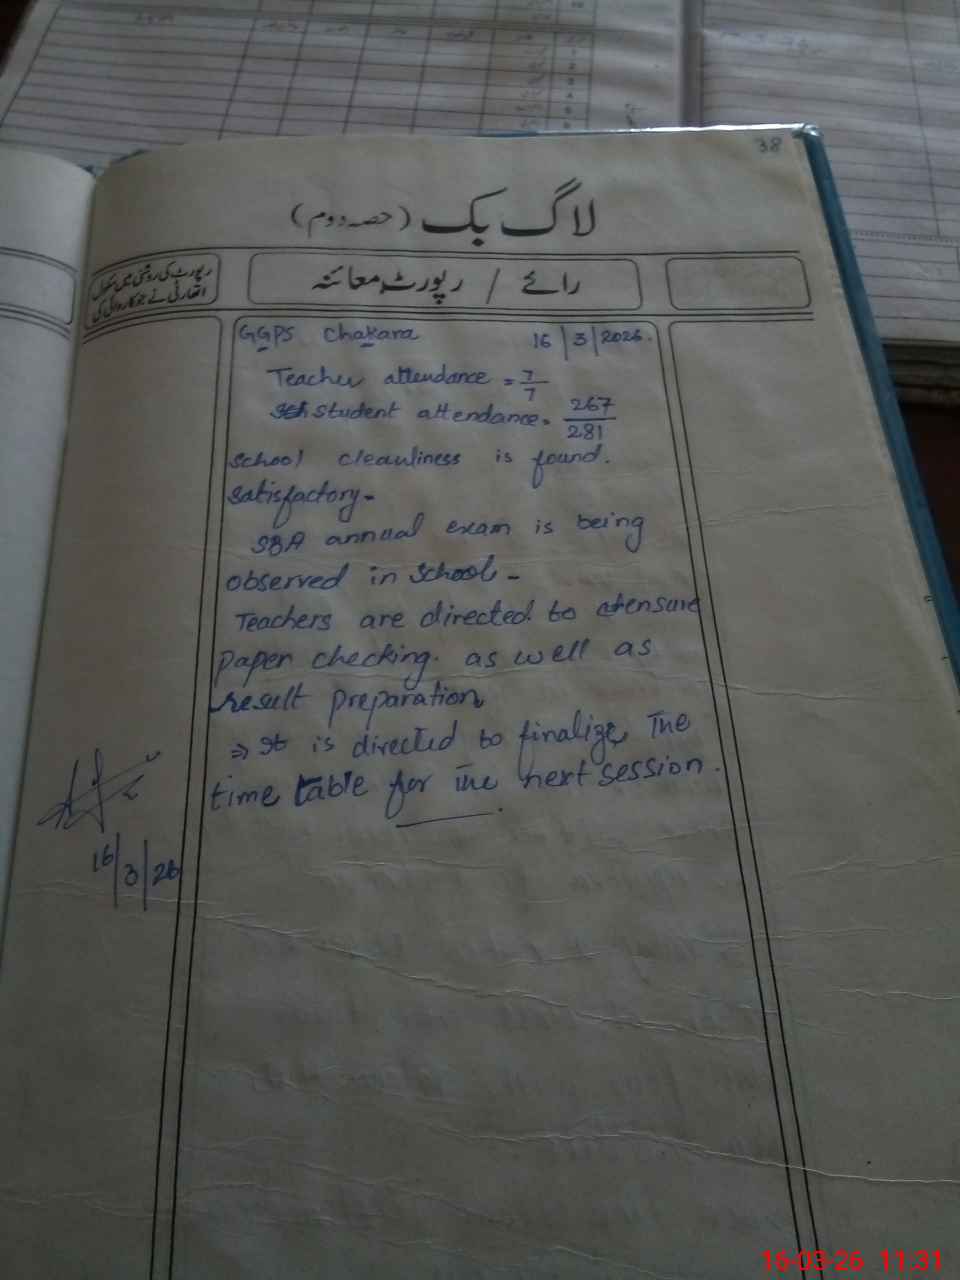 38
لاگ بک (حصہ دوم)
رپورٹ کی روشنی میں متعلقہ
اتھارٹی نے جو کاروائی کی
رائے / رپورٹ معائنہ
GGPS Chakara 16/3/2026.
Teacher attendance = 7/7
student attendance = 267/281
school cleanliness is found.
satisfactory -
SBA annual exam is being
observed in school -
Teachers are directed to ensure
paper checking. as well as
result preparation
⇒ It is directed to finalize The
time table for The next session.
16/3/26
16-03-26 11:31